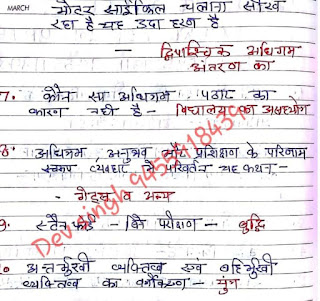 MARCH
मोटर साईकिल चलाना सीख
रहा है यह उदाहरण है
— द्विपार्श्विक अधिगम
अंतरण का
7. कौन सा अधिगम पठार का
कारण नहीं है – विद्यालय का असहयोग
8. अधिगम, अनुभव और प्रशिक्षण के परिणाम
स्वरूप व्यवहार में परिवर्तन यह कथन –
- गेट्स व अन्य
9. स्टैनफोर्ड – बिने परीक्षण – बुद्धि
अन्तर्मुखी व्यक्तित्व एवं बहिर्मुखी
व्यक्तित्व का वर्गीकरण – युंग
Dev singh